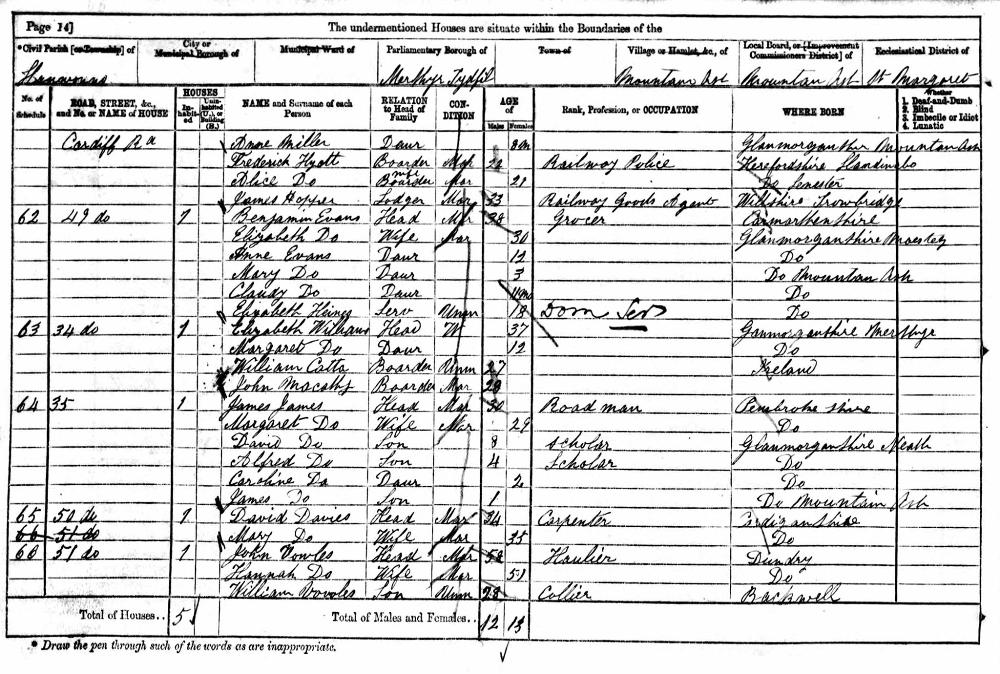 Page 14]
The undermentioned Houses are situate within the Boundaries of the
*Civil Parish [or Township] of
City or Municipal Borough of
Municipal Ward of
Parliamentary Borough of
Town of
Village or Hamlet, &c., of
Local Board, or [Improvement Commissioners District] of
Ecclesiastical District of
Merthyr Tydfil Mountain Ash Mountain Ash St Margaret
No. of Schedule
ROAD, STREET, &c., and No. or NAME of HOUSE
HOUSES
Inhabited
Uninhabited (U.), or Building (B.)
NAME and Surname of each Person
RELATION to Head of Family
CONDITION
AGE of
Males
Females
Rank, Profession, or OCCUPATION
WHERE BORN
Whether
1. Deaf-and-Dumb
2. Blind
3. Imbecile or Idiot
4. Lunatic
Cardiff Rd Anne Miller Daur 8m Glanmorganshire Mountain Ash
Frederick Hyatt Boarder Mar 22 Railway Police Herefordshire Llandinabo
Alice Do Boarder wife Mar 21 Do
James Hopper Lodger Mar 33 Railway Goods Agent Wiltshire Trowbridge
62 49 do 1 Benjamin Evans Head Mar 38 Grocer Carmarthenshire
Elizabeth Do Wife Mar 30 Glanmorganshire Maesteg
Anne Evans Daur 12 Do
Mary Do Daur 3 Do Mountain Ash
Claudy Do Daur 11mo Do
Elizabeth Serv Unm 18 Dom Ser Do
63 34 do 1 Elizabeth Williams Head W 37 Ganmorganshire Merthyr
Margaret Do Daur 12 Do
William Catta Boarder Unm 27 Ireland
John Macathy Boarder Mar 28
64 35 1 James James Head Mar 30 Road man Pembroke shire
Margaret Do Wife Mar 29 Do
David Do Son 8 Scholar Glanmorganshire Neath
Alfred Do Son 4 Scholar Do
Caroline Do Daur 2 Do
James Do Son 1 Do Mountain Ash
65 50 do 1 David Davies Head Mar 34 Carpenter Cardiganshire
66 51 do Mary Do Wife Mar 35 Do
60 51 do 1 John Vowles Head Mar 58 Haulier Dundry
Hannah Do Wife Mar 51 Do
William Vowles Son Unm 28 Collier Backwell
Total of Houses.. 5 Total of Males and Females.. 12 13
* Draw the pen through such of the words as are inappropriate.